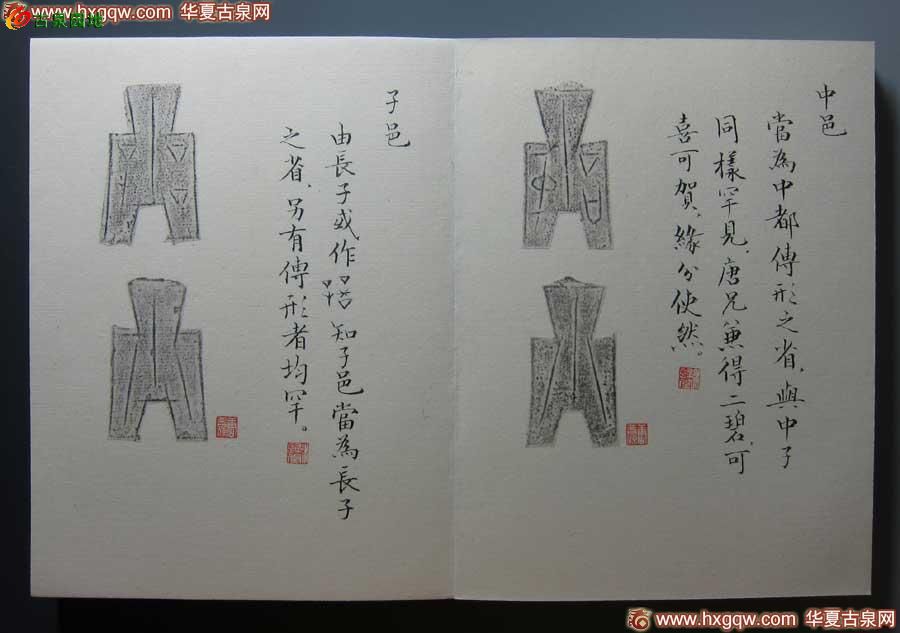 古泉园地
www.hxgqw.com 华夏古泉网
中邑
當為中都傳形之省，與中子
同樣罕見，唐兄兼得二碧，可
喜可賀，緣分使然。
子邑
由長子或作 知子邑當為長子
之省，另有傳形者均罕。
www.hxgqw.com 华夏古泉网